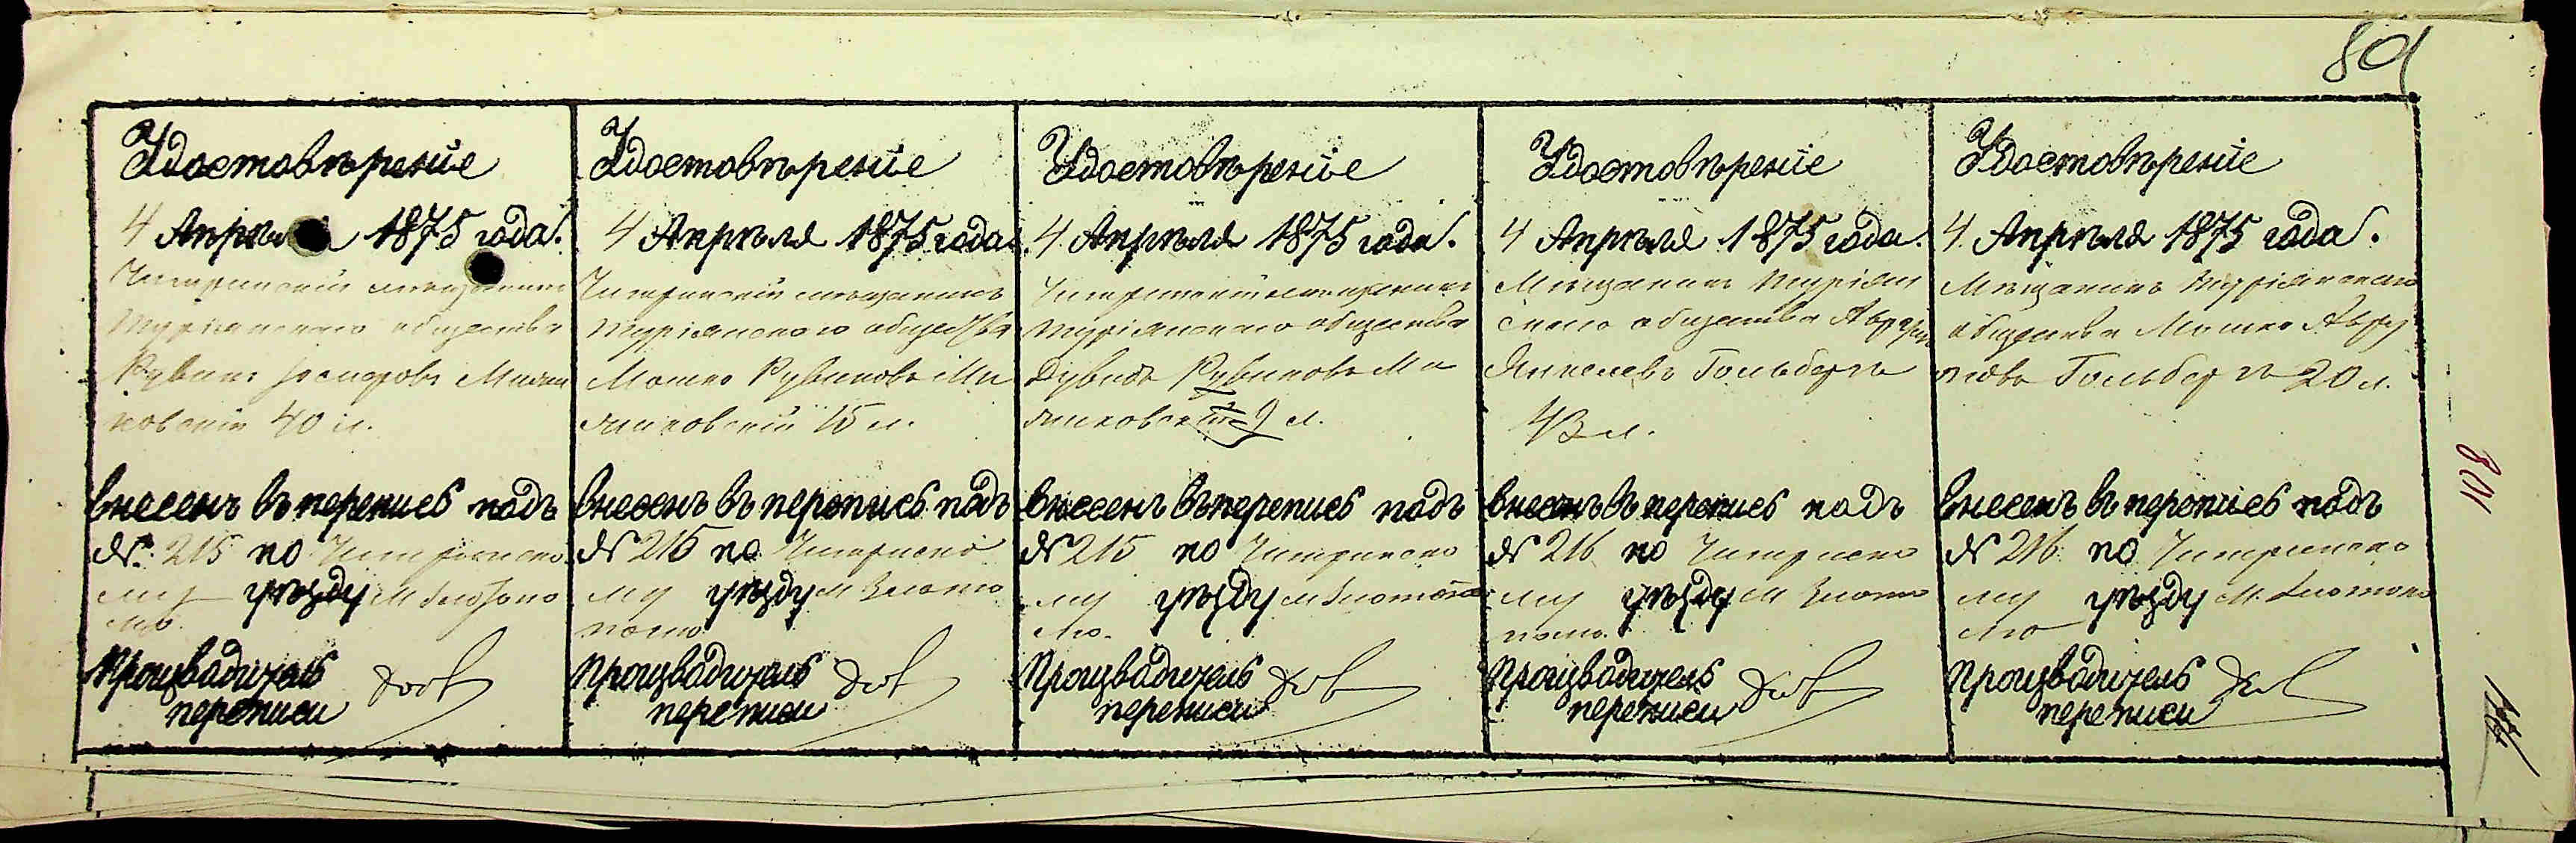 89
Удостовѣреніе
4 Апрѣля 1875 года.
Чигиринскій мѣщанинъ
Турріянскаго общества
Рувинъ
40 л.
внесенъ въ перепись подъ
№ 215 по Чигиринско
му уѣзду м. Златопо
лю
Производитель
переписи
Удостовѣреніе
4 Апрѣля 1875 года.
Чигиринскій мѣщанинъ
Турріянского общества
Мошко Рувиновъ Ми
15 л.
внесенъ въ перепись подъ
№ 215 по Чигиринско
му уѣзду м. Злато
полю
Производитель
переписи
Удостовѣреніе
4 Апрѣля 1875 года.
Чигиринскій мѣщанинъ
Турріянскаго общества
Дувидъ Рувиновъ Ми
9 л.
внесенъ въ перепись подъ
№ 215 по Чигиринско
му уѣзду м. Златопо
лю
Производитель
переписи
Удостовѣреніе
4 Апрѣля 1875 года.
Мѣщанинъ Турріян
скаго общества
Янкелевъ Гольдбергъ
43 л.
внесенъ въ перепись подъ
№ 216 по Чигиринско
му уѣзду м. Злато
полю
Производитель
переписи
Удостовѣреніе
4 Апрѣля 1875 года.
Мѣщанинъ Турріянскаго
общества Мошко Авру
мовъ Гольдбергъ 20 л.
внесенъ въ перепись подъ
№ 216 по Чигиринско
му уѣзду м. Златопо
лю
Производитель
переписи
108